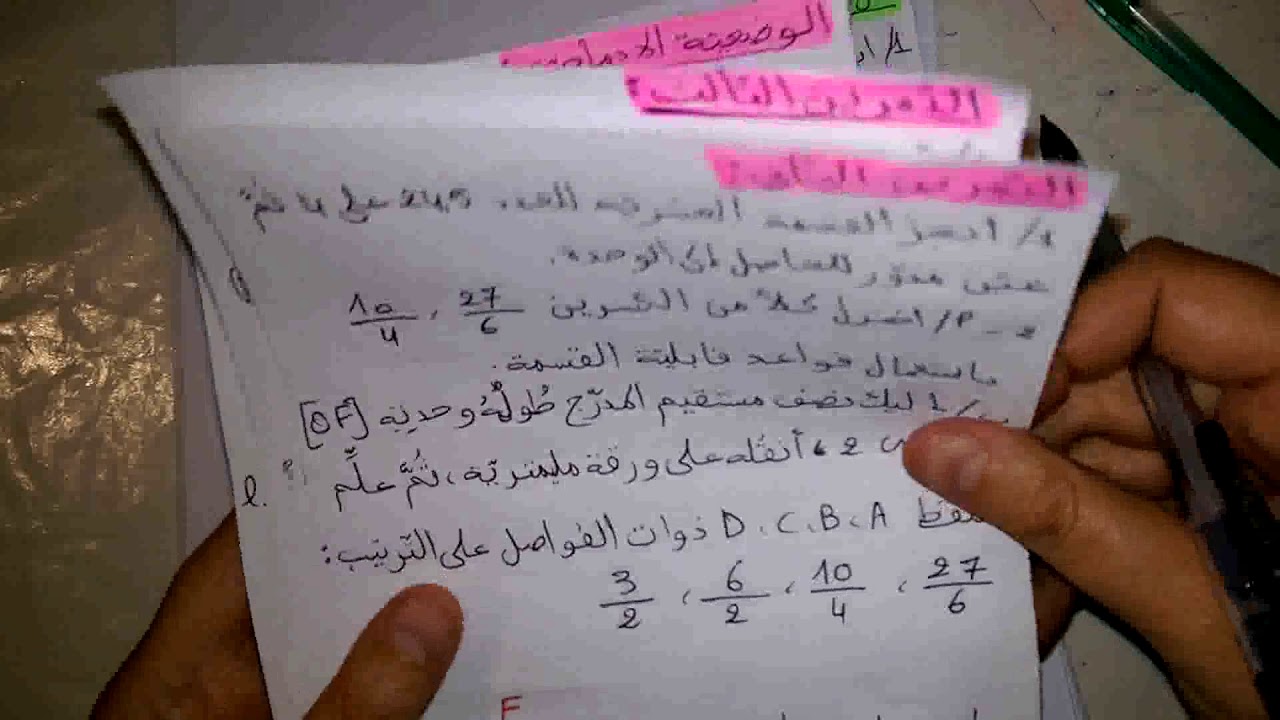 الوضعية الإدماجية:
التمرين الثالث:
التمرين الثاني:
1/ انجز القسمة العشرية لـ 245 على 4 ثم
مدور للحاصل إلى الوحدة.
2 - P/ اختزل كلا من الكسرين 27/6 ، 10/4
باستعمال قواعد قابلية القسمة.
إليك نصف مستقيم المدرّج طُولُهُ وحدته [OF]
2 ، أنقله على ورقة مليمتريّة، ثُمَّ علّم
النقط A، B، C، D ذوات الفواصل على التّرتيب:
27/6 ، 10/4 ، 6/2 ، 3/2
F